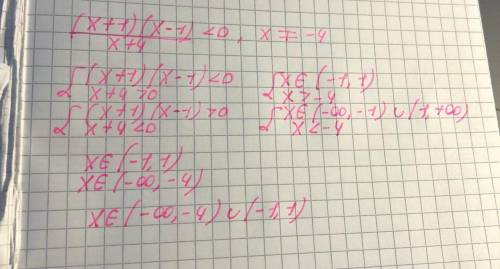 (x+1)(x-1)/x+4 <0, x ≠ -4
{ (x+1)(x-1)<0 { x∈(-1,1)
{ x+4>0 { x>-4
{ (x+1)(x-1)>0 { x∈(-∞,-1)∪(1,+∞)
{ x+4<0 { x<-4
x∈(-1,1)
x∈(-∞,-4)
x∈(-∞,-4)∪(-1,1)